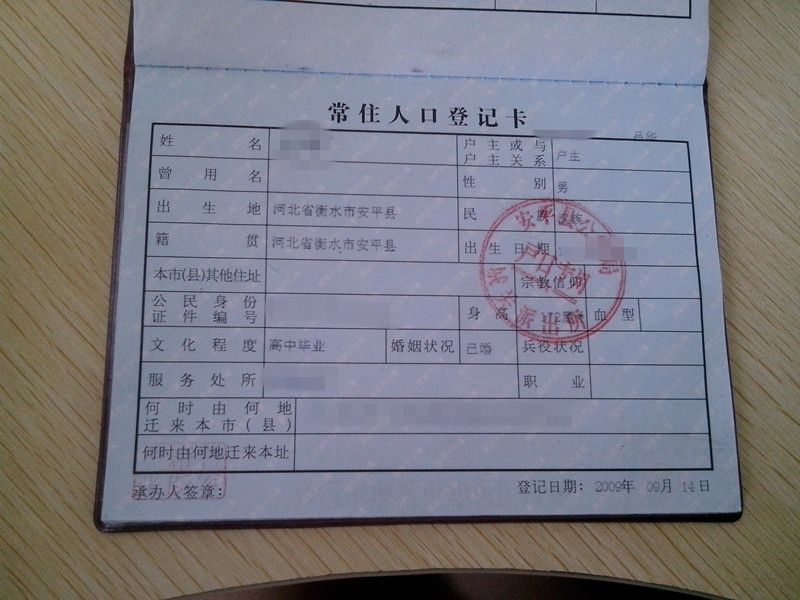 常住人口登记卡
姓名 户主或与户主关系 户主
曾用名 性别 男
出生地 河北省衡水市安平县 民族
籍贯 河北省衡水市安平县 出生日期
本市(县)其他住址 宗教信仰
公民身份证件编号 身高 血型
文化程度 高中毕业 婚姻状况 已婚 兵役状况
服务处所 职业
何时由何地迁来本市(县)
何时由何地迁来本址
承办人签章: 登记日期: 2009年 09月 14日